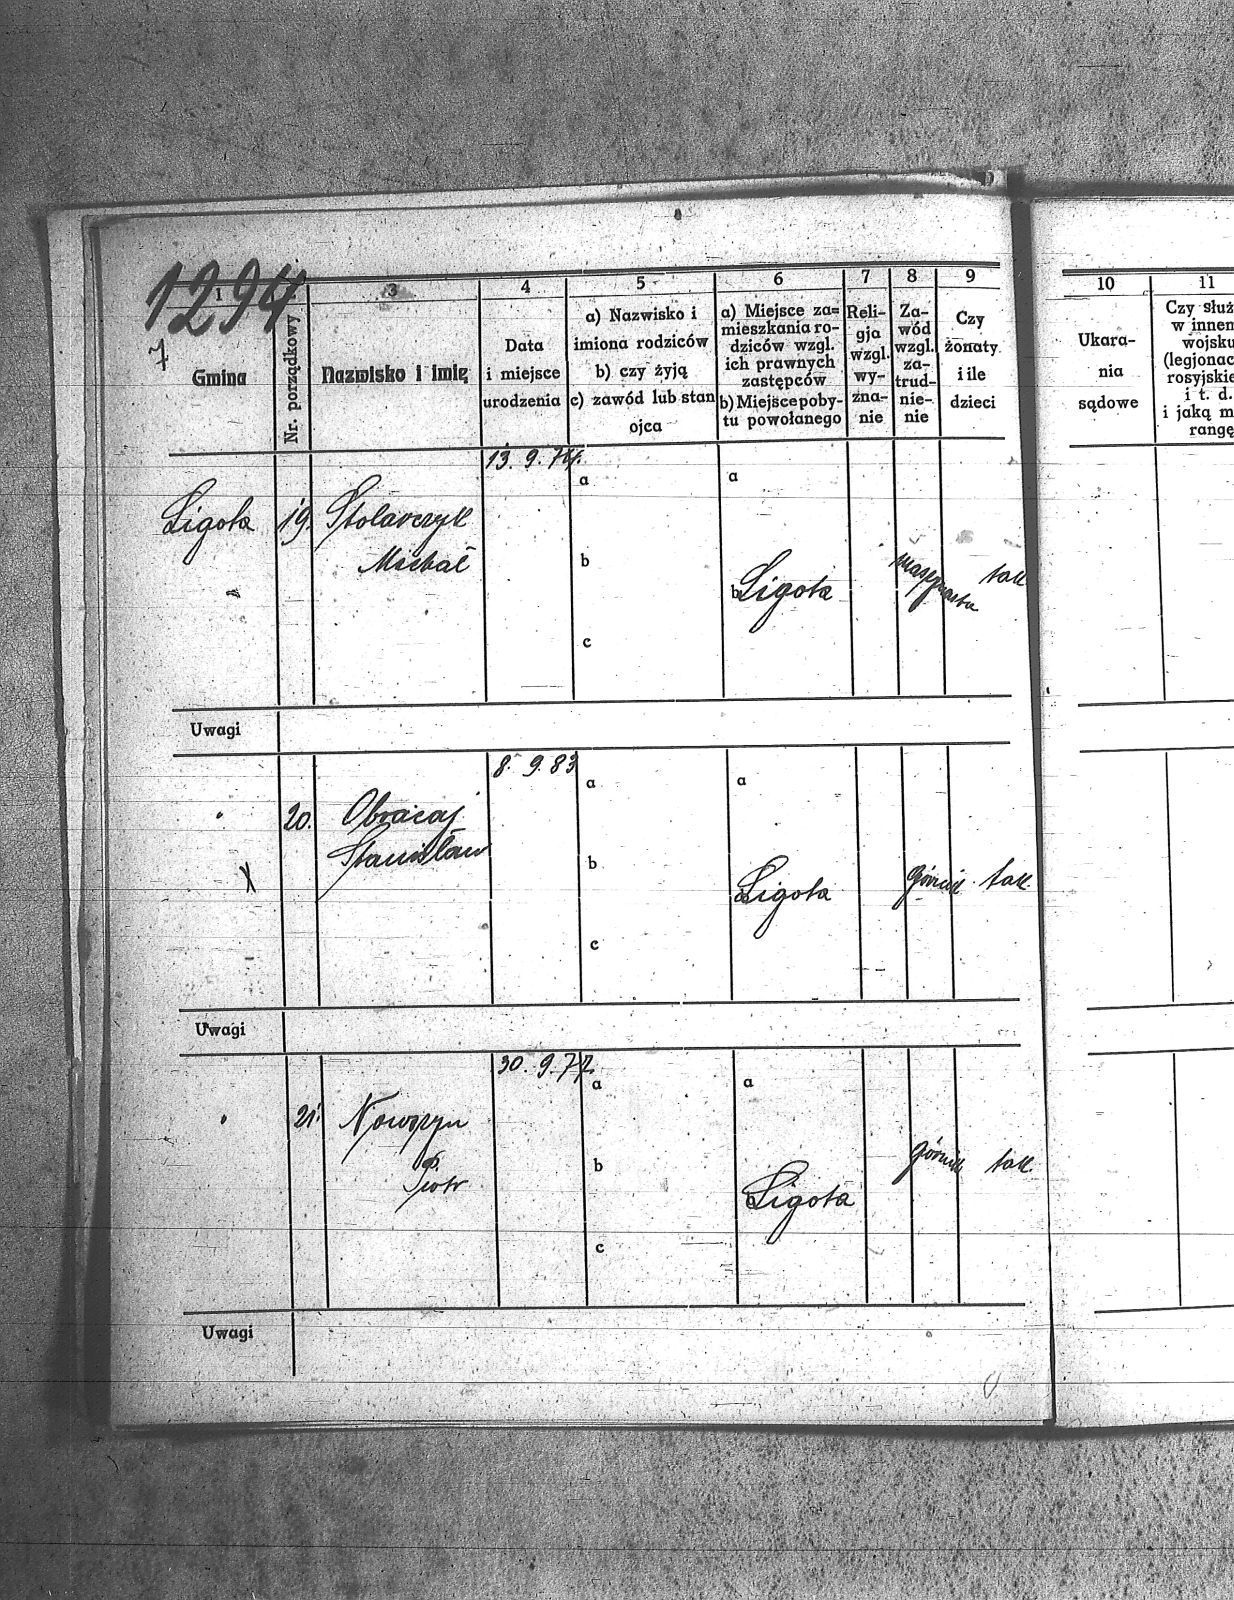 1294
7
1
3
4
5
6
7
8
9
10
11
Gmina
Nr. porządkowy
Nazwisko i imię
Data
i miejsce
urodzenia
a) Nazwisko i
imiona rodziców
b) czy żyją
c) zawód lub stan
ojca
a) Miejsce za=
mieszkania ro-
dziców wzgl.
ich prawnych
zastępców
b) Miejsce poby-
tu powołanego
Reli-
gja
wzgl.
wy-
zna-
nie
Za-
wód
wzgl.
za-
trud-
nie-
nie
Czy
żonaty
i ile
dzieci
Ukara-
nia
sądowe
Czy służ
w innem
wojsku
(legjonac
rosyjskie
i t. d.
i jaką m
rangę
13. 9. 74.
Ligota 19. Stolarczyk
Michał
a
b
c
a
b Ligota
tak
Uwagi
8. 9. 83
20. Obracaj
Stanisław
a
b
c
a
Ligota
górnik tak.
X
Uwagi
30. 9. 77.
21.
Piotr
a
b
c
a
Ligota
górnik tak.
Uwagi